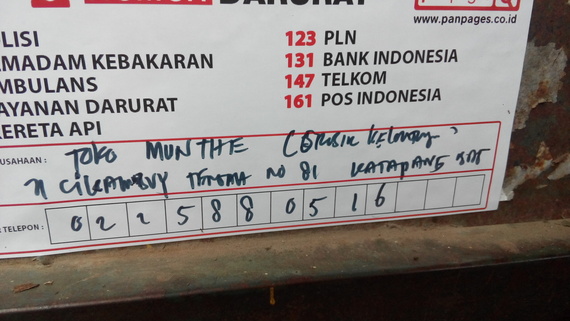 DARURAT
www.panpages.co.id
OLISI
MADAM KEBAKARAN
MBULANS
AYANAN DARURAT
ERETA API
123 PLN
131 BANK INDONESIA
147 TELKOM
161 POS INDONESIA
USAHAAN : TOKO MUNTHE
CIKAMBUY TENGAH NO 81 KATAPANG BDG
TELEPON : 022 5880516